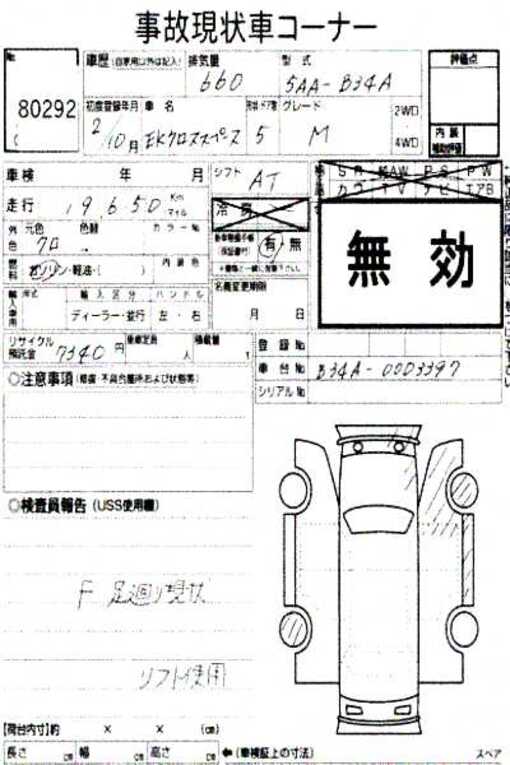 事故現状車コーナー
No
80292
車歴 (自家用以外は記入) 排気量 型式
660 5AA-B34A
評価点
初度登録年月 車名 形状 ドア数 グレード
2/10月 EKクロススペース 5 M
2WD
4WD
内装
補助評価
車検 年 月 シフト AT
SR AAW PS PW
カワ TV ナビ エアB
走行 19,650 Km マイル
冷房
無効
外色 元色 色替 カラーNo
クロ
有・無
(保証書付)
燃料 ガソリン・軽油・( ) 内装色
名義変更期限
月 日
輸入車用 年式 輸入区分 ハンドル
ディーラー・並行 左・右
リサイクル預託金 7340円 乗車定員 人 積載量 t
登録No
車台No B34A-0003397
シリアルNo
○注意事項 (修復・不具合箇所および状態等)
○検査員報告 (USS使用欄)
F 足廻り現状
リフト使用
【荷台内寸】約 × × (cm)
長さ cm 幅 cm 高さ cm ←(車検証上の寸法)
スペア